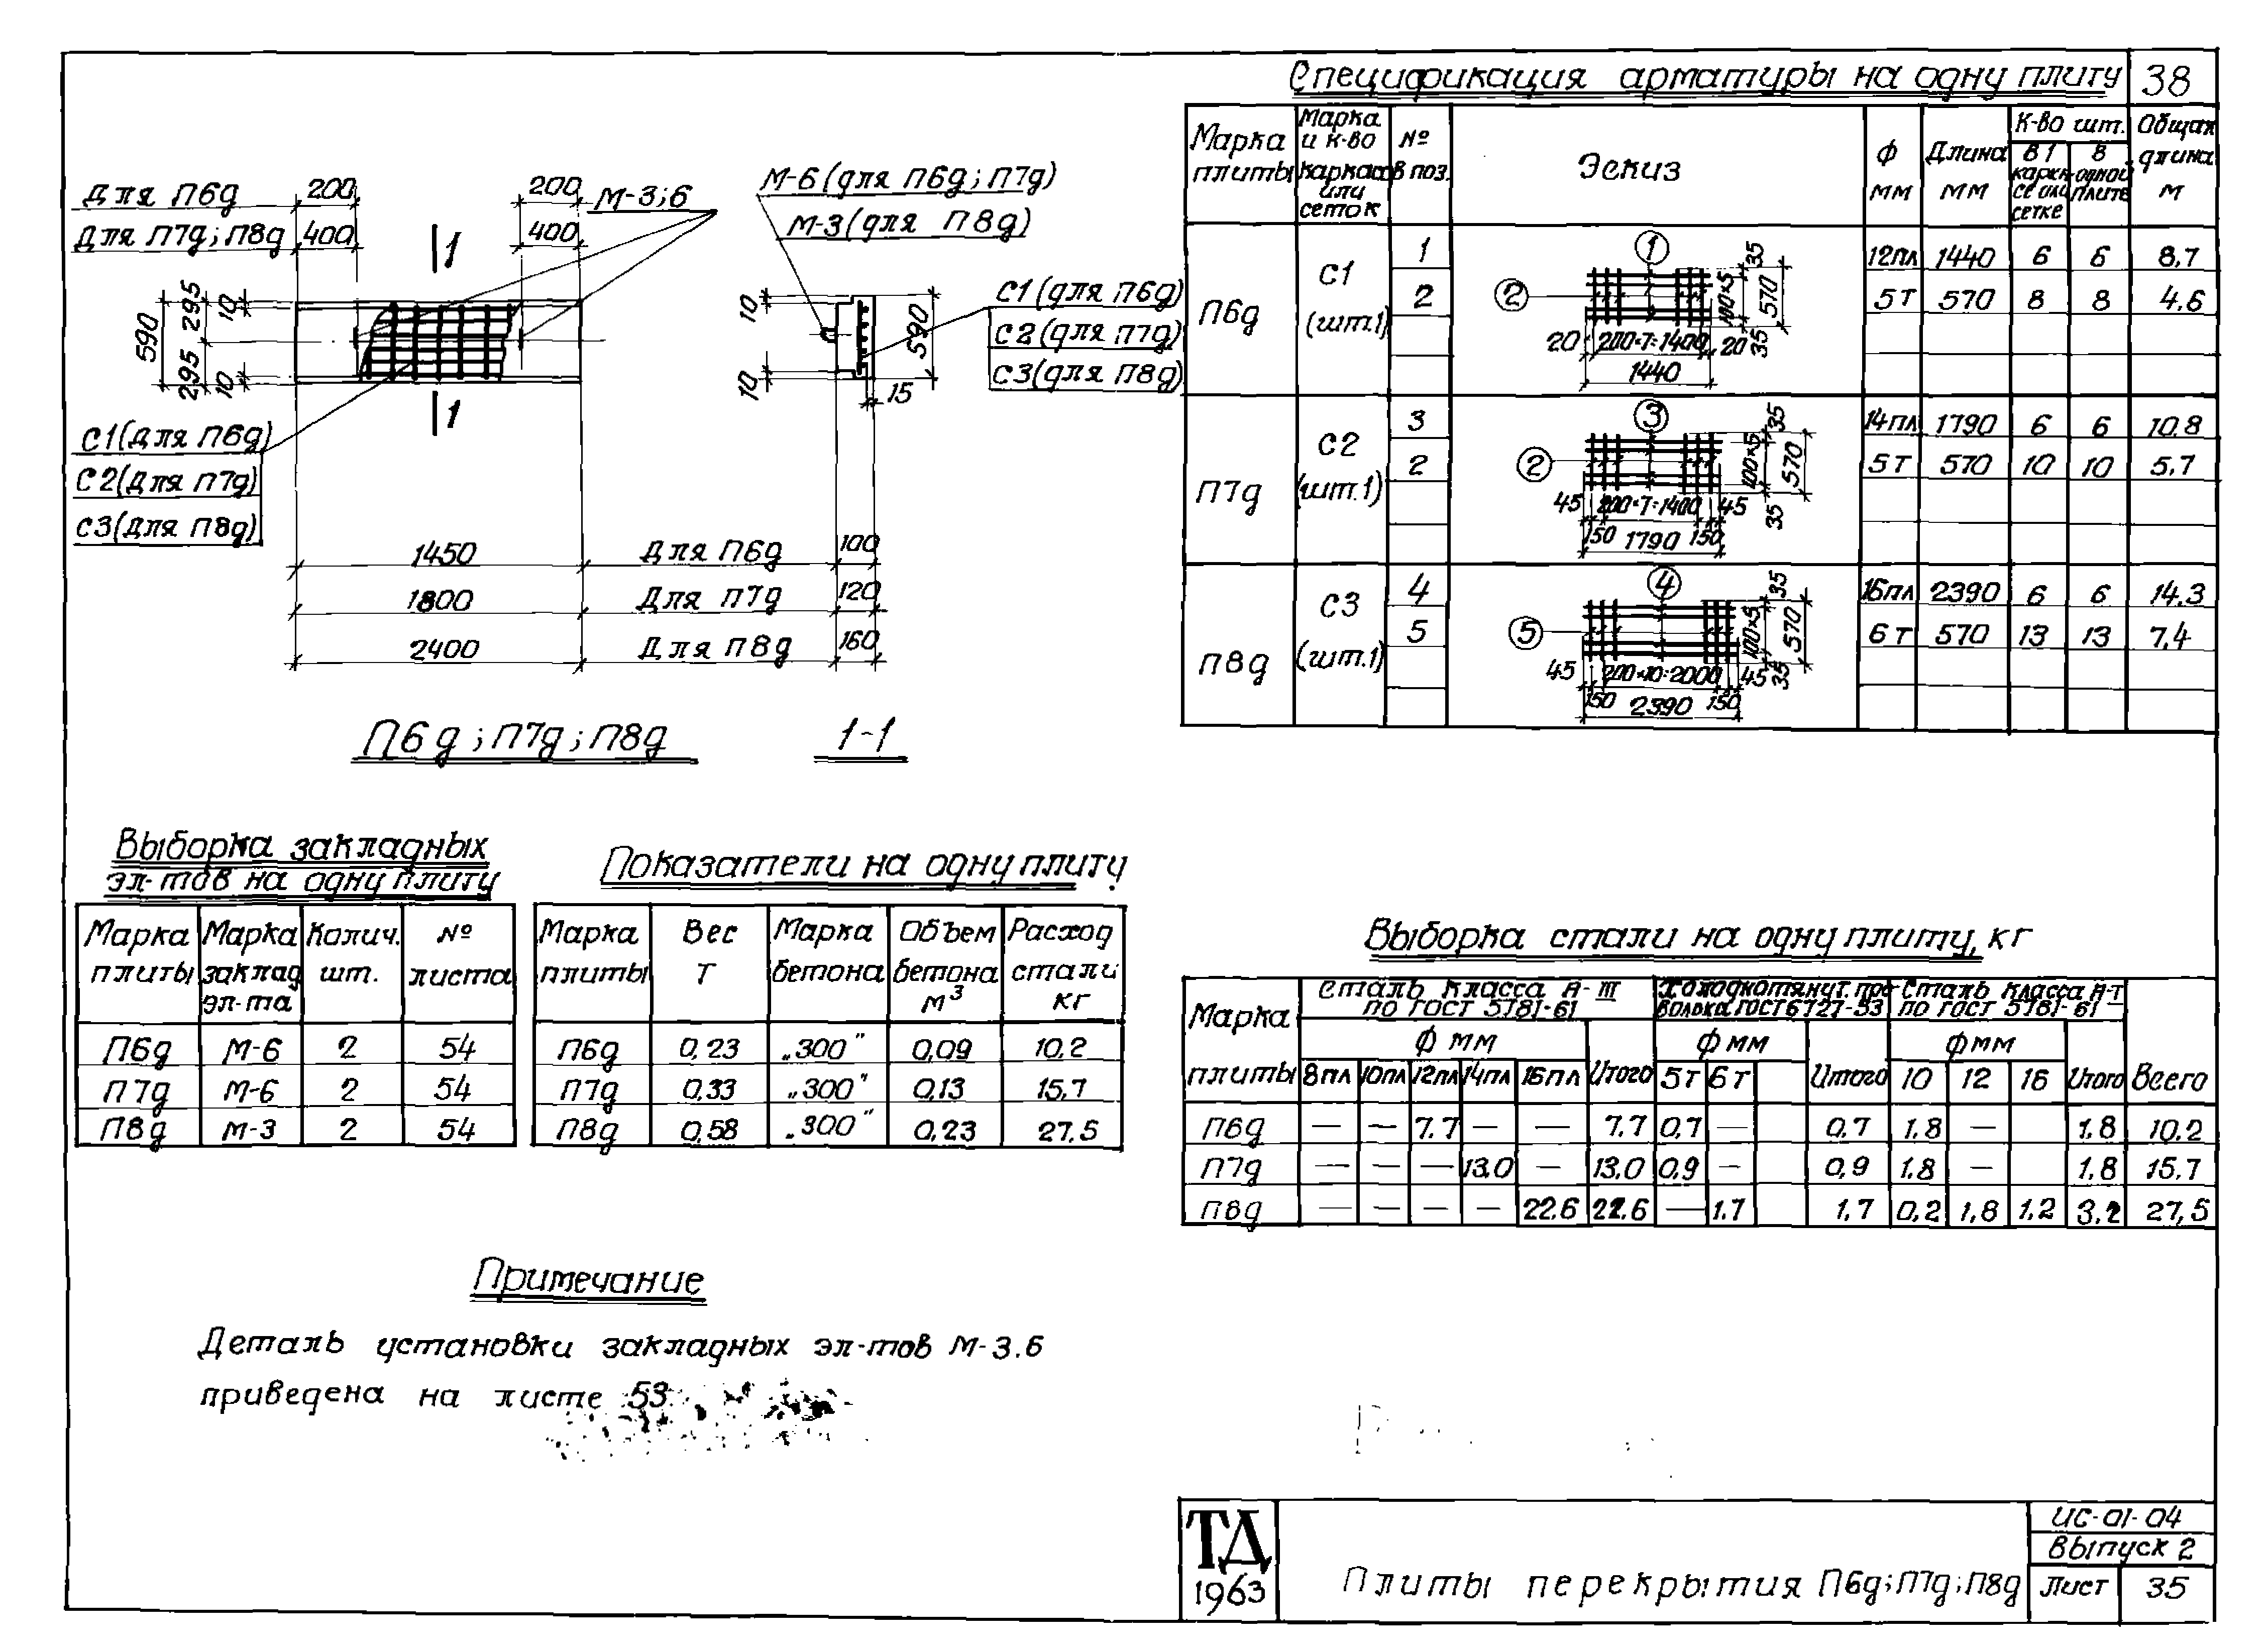 38
Спецификация арматуры на одну плиту
Марка плиты | Марка и к-во каркасов или сеток | № в поз. | Эскиз | Ф мм | Длина мм | К-во шт. | Общая длина м
в 1 каркасе или сетке | в одной плите
П6д | С1 (шт.1) | 1 | 12пл | 1440 | 6 | 6 | 8,7
2 | 5т | 570 | 8 | 8 | 4.6
1
2
20 200×7=1400 20
1440
35 100×5 35 570
П7д | С2 (шт.1) | 3 | 14пл | 1790 | 6 | 6 | 10.8
2 | 5т | 570 | 10 | 10 | 5,7
3
2
45 200×7=1400 45
150 1790 150
35 100×5 35 570
П8д | С3 (шт.1) | 4 | 16пл | 2390 | 6 | 6 | 14.3
5 | 6т | 570 | 13 | 13 | 7,4
4
5
45 200×10=2000 45
150 2390 150
35 100×5 35 570
Для П6д 200 200
Для П7д; П8д 400 400
М-3;6
1
1
590 295 295 10 10
С1(для П6д)
С2(для П7д)
С3(для П8д)
М-6 (для П6д; П7д)
М-3 (для П8д)
10 10 590 15
С1 (для П6д)
С2 (для П7д)
С3 (для П8д)
1450 Для П6д 100
1800 Для П7д 120
2400 Для П8д 160
П6д; П7д; П8д
1-1
Выборка закладных
эл-тов на одну плиту
Марка плиты | Марка заклад. эл-та | Колич. шт. | № листа
П6д | М-6 | 2 | 54
П7д | М-6 | 2 | 54
П8д | М-3 | 2 | 54
Показатели на одну плиту
Марка плиты | Вес т | Марка бетона | Объем бетона м³ | Расход стали кг
П6д | 0,23 | „300" | 0,09 | 10,2
П7д | 0,33 | „300" | 0,13 | 15,7
П8д | 0,58 | „300" | 0,23 | 27,5
Выборка стали на одну плиту, кг
Марка плиты | Сталь класса А-III по ГОСТ 5781-61 | Холоднотянут. проволока ГОСТ 6727-53 | Сталь класса А-I по ГОСТ 5781-61 | Всего
Ф мм | Итого | Ф мм | Итого | Ф мм | Итого
8пл | 10пл | 12пл | 14пл | 16пл | 5т | 6т | 10 | 12 | 16
П6д | — | — | 7.7 | — | — | 7,7 | 0,7 | — | 0,7 | 1,8 | — | 1,8 | 10,2
П7д | — | — | — | 13,0 | — | 13,0 | 0,9 | — | 0,9 | 1,8 | — | 1,8 | 15,7
П8д | — | — | — | — | 22,6 | 22,6 | — | 1,7 | 1,7 | 0,2 | 1,8 | 1,2 | 3,2 | 27,5
Примечание
Деталь установки закладных эл-тов М-3.6
приведена на листе 53
ТД
1963
Плиты перекрытия П6д; П7д; П8д
ИС-01-04
Выпуск 2
Лист 35